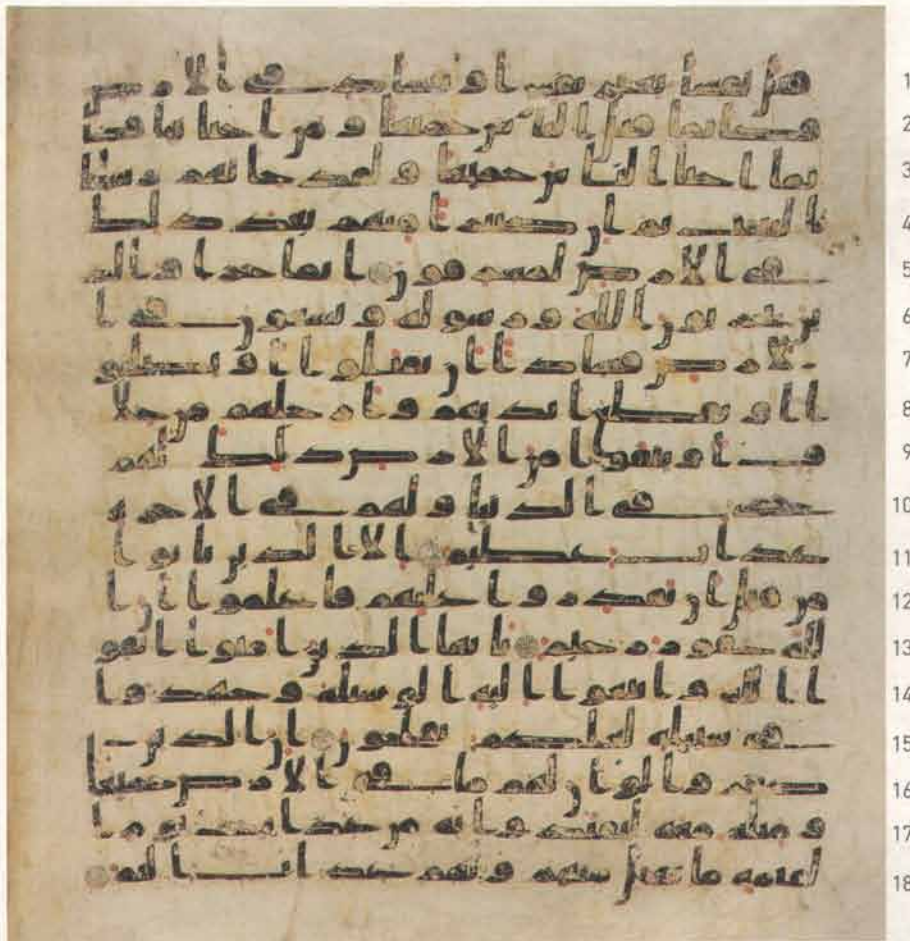 1 قتل نفسا بغير نفس او فساد في الارض
2 فكانما قتل الناس جميعا ومن احياها فكا
3 نما احيا الناس جميعا ولقد جاتهم رسلنا
4 بالبينت ثم ان كثيرا منهم بعد ذلك
5 في الارض لمسرفون انما جزاوا الذ
6 ين يحربون الله ورسوله ويسعون في ا
7 لارض فسادا ان يقتلوا او يصلبو
8 ا او تقطع ايديهم وارجلهم من خلا
9 ف او ينفوا من الارض ذلك لهم
10 خزي في الدنيا ولهم في الاخرة
11 عذاب عظيم الا الذين تابوا
12 من قبل ان تقدروا عليهم فاعلموا ان ا
13 لله غفور رحيم يايها الذين امنوا اتقو
14 ا الله وابتغوا اليه الوسيلة وجهدوا
15 في سبيله لعلكم تفلحون ان الذين
16 كفروا لو ان لهم ما في الارض جميعا
17 ومثله معه ليفتدوا به من عذاب يوم ا
18 لقيمة ما تقبل منهم ولهم عذاب اليم